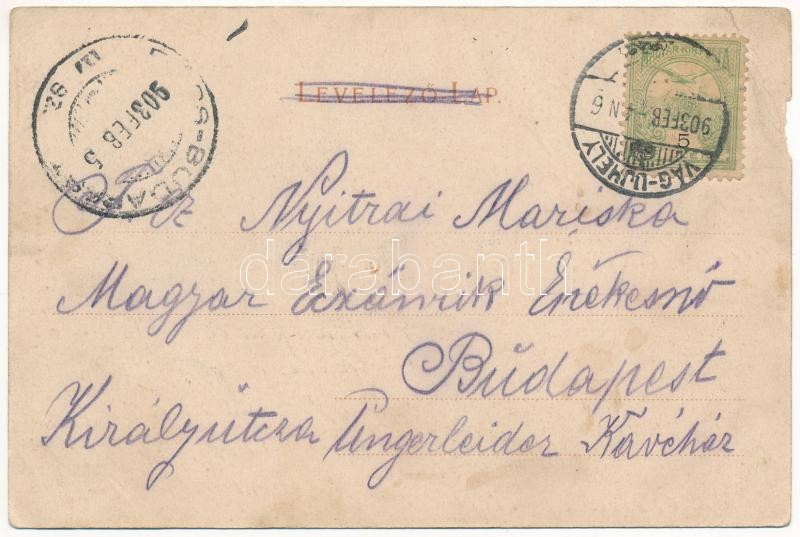 LEVELEZŐ LAP.
903 FEB 5
903 FEB 4 N 6
VÁG-UJHELY
5
Nyitrai Mariska
darabanth
Magyar Énekesnő
Budapest
Királyútcza Ungerleider Kávéház